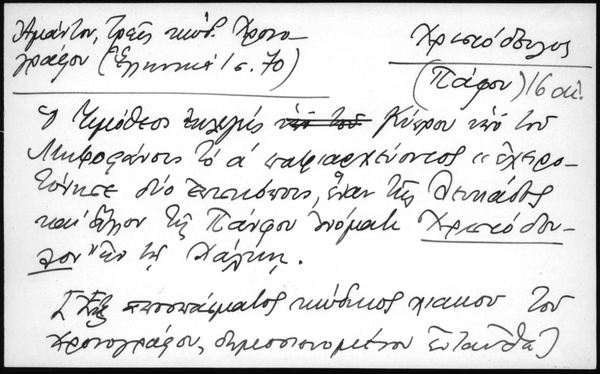 Ἀμάντου, τρεῖς κώδ. Χρονο-
γράφου (Ἑλληνικὰ 1 σ. 70)
Χριστόδουλος
(Πάφου) 16 αἰ.
Ὁ Τιμόθεος Κύπρου ὑπὸ τοῦ
Μητροφάνους τὸ α' πατριαρχεύοντος "ἐχειρο-
τόνησε δύο ἐπισκόπους, ἕναν τῆς Λευκάδος
καὶ ἄλλον τῆς Πάφου ὀνόματι Χριστόδου-
λον" ἐν τῇ Χάλκῃ.
[Ἐξ ἀποσπάσματος κώδικος τοῦ
Χρονογράφου, δημοσιευομένου ἐνταῦθα]